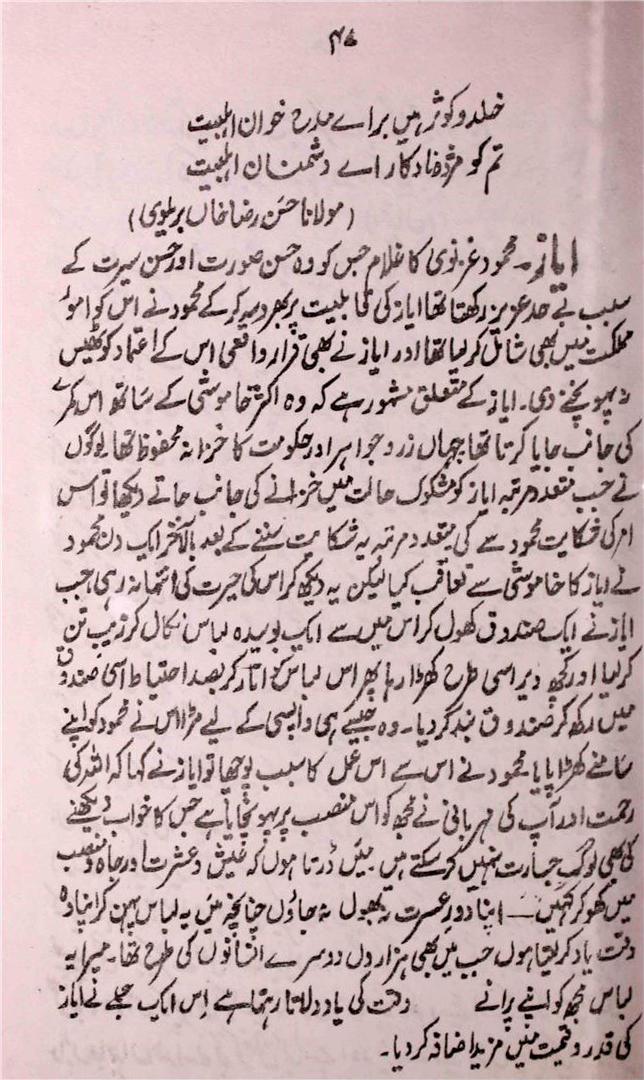 ۴۷
خلد و کوثر ہیں براے مدح خوان اہلبیت
تم کو مژدہ نار کا اے دشمنان اہلبیت
(مولانا حسن رضا خاں بریلوی)
ایاز۔ محمود غزنوی کا غلام جس کو وہ حسن صورت اور حسن سیرت کے
سبب بے حد عزیز رکھتا تھا ایاز کی قابلیت پر بھروسہ کر کے محمود نے اس کو امور
مملکت میں بھی شامل کر لیا تھا اور ایاز نے بھی قرار واقعی اس کے اعتماد کو ٹھیس
نہ پہونچنے دی۔ ایاز کے متعلق مشہور ہے کہ وہ اکثر خاموشی کے ساتھ اس کمرے
کی جانب جایا کرتا تھا جہاں زر و جواہر اور حکومت کا خزانہ محفوظ تھا لوگوں
نے جب متعدد مرتبہ ایاز کو مشکوک حالت میں خزانے کی جانب جاتے دیکھا تو اس
امر کی شکایت محمود سے کی متعدد مرتبہ یہ شکایت سننے کے بعد بالآخر ایک دن محمود
نے ایاز کا خاموشی سے تعاقب کیا لیکن یہ دیکھ کر اس کی حیرت کی انتہا نہ رہی جب
ایاز نے ایک صندوق کھول کر اس میں سے ایک بوسیدہ لباس نکال کر زیب تن
کر لیا اور کچھ دیر اسی طرح کھڑا رہا پھر اس لباس کو اتار کر بصد احتیاط اسی صندوق
میں رکھ کر صندوق بند کر دیا۔ وہ جیسے ہی واپسی کے لیے مڑا اس نے محمود کو اپنے
سامنے کھڑا پایا۔ محمود نے اس سے اس عمل کا سبب پوچھا تو ایاز نے کہا کہ اللہ کی
رحمت اور آپ کی مہربانی نے مجھ کو اس منصب پر پہونچایا ہے جس کا خواب دیکھنے
کی بھی لوگ جسارت نہیں کر سکتے ہیں میں ڈرتا ہوں کہ عیش و عشرت اور جاہ و منصب
میں کھو کر کہیں — اپنا دور عسرت نہ بھول جاؤں چنانچہ میں یہ لباس پہن کر اپنا وہ
وقت یاد کر لیتا ہوں جب میں بھی ہزاروں دوسرے انسانوں کی طرح تھا۔ میرا یہ
لباس مجھ کو اپنے پرانے وقت کی یاد دلاتا رہتا ہے اس ایک جملے نے ایاز
کی قدر و قیمت میں مزید اضافہ کر دیا۔